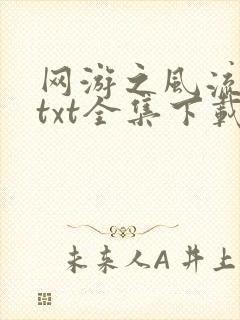 网游之风流
txt全集下载
未来人A 井上